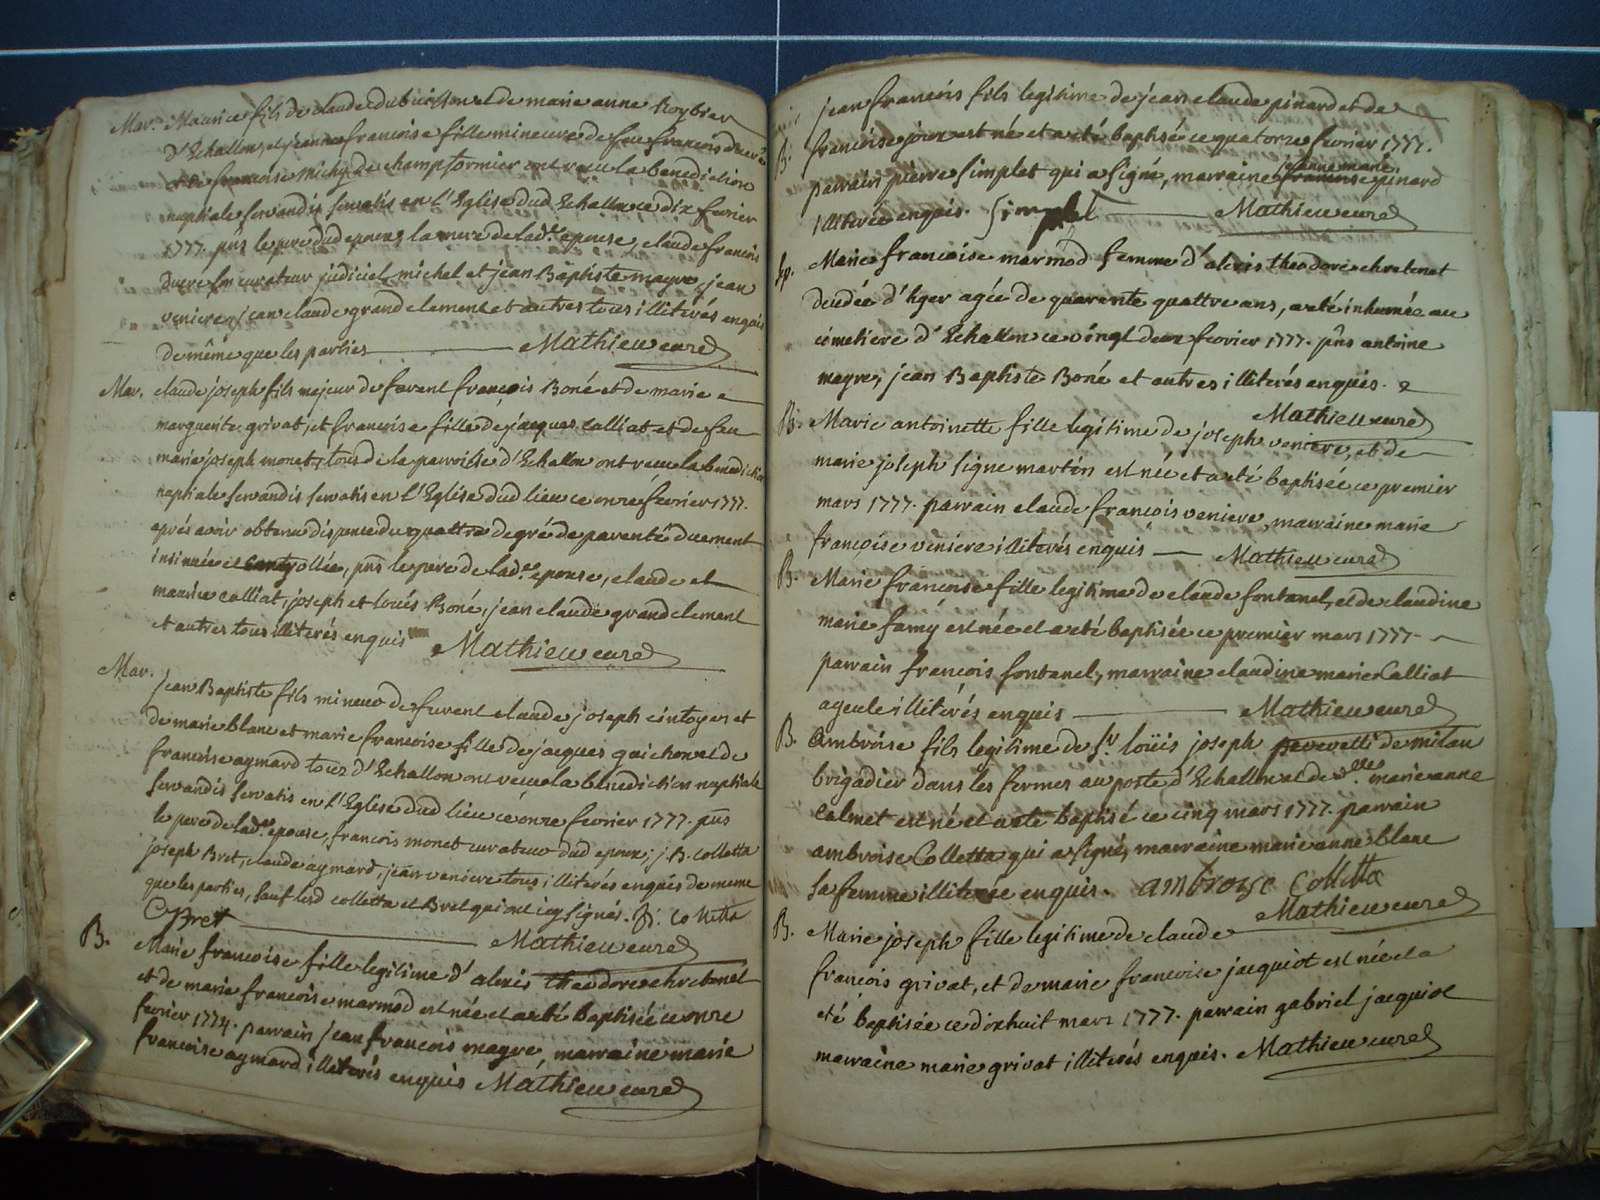 Mar. Maurice fils de claude dubuisson et de marie anne Roybier
d'Echallon, et jeanne francoise fille mineure de feu francois ducre
et de francoise michy de champformier ont recu la benediction
nuptiale servandis servatis en l'Eglise dud Echallon ce dix fevrier
1777. pns le pere dud epoux, la mere de lad.e epouse, claude francois
ducre son curateur judiciel, michel et jean Baptiste mayre, jean
veniere, jean claude grandclement et autres tous illiterés enquis
de même que les parties Mathieu curé
Mar. claude joseph fils majeur de fuvent françois Boné et de marie
marguerite grivat, et francoise fille de jacques calliat et de feu
marie joseph monet, tous de la parroisse d'Echallon ont recu la benediction
nuptiale servandis servatis en l'Eglise dud lieu ce onze fevrier 1777.
aprés avoir obtenu dispence du quattre degré de parenté duement
insinuée et, pns le pere de lad.e epouse, claude et
maurice calliat, joseph et loués Boné, jean claude grandclement
et autres tous illiterés enquis Mathieu curé
Mar. jean Baptiste fils mineur de fuvent claude joseph cintoyer et
de marie blanc et marie francoise fille de jacques guichon et de
francoise aymard tous d'Echallon ont recu la benediction nuptiale
servandis servatis en l'Eglise dud lieu ce onze fevrier 1777. pns
le pere de lad.e epouse, francois monet curateur dud epoux, j. B. colletta
joseph Bret, claude aymard, jean veniere tous illiterés enquis de meme
que les parties, sauf lesd colletta et Bret qui ont icy signés. colletta
Bret Mathieu curé
B. Marie francoise fille legitime d'alexis theodore chretenet
et de marie francoise marmod est née et a eté baptisée ce onze
fevrier 1774. parrain jean francois mayre, marraine marie
francoise aymard illiterés enquis Mathieu curé
jean francois fils legitime de jean claude pinard et de
B. francoise joux est né et a eté baptisé ce quatorze fevrier 1777.
jeanne marie
parrain pierre simplet qui a signé, marraine francoise pinard
illiterée enquis. Simplet Mathieu curé
Sp. Marie francoise marmod femme d'alexis theodore chretenet
decedée d'hyer agée de quarente quattre ans, a eté inhumée au
cimetiere d'Echallon ce vingt deux fevrier 1777. pns antoine
mayre, jean Baptiste Boné et autres illiterés enquis.
Mathieu curé
B. Marie antoinette fille legitime de joseph veniere, et de
marie joseph signe martin est née et a eté baptisée ce premier
mars 1777. parrain claude françois veniere, marraine marie
françoise veniere illiterés enquis Mathieu curé
B. Marie francoise fille legitime de claude fontanel, et de claudine
marie famy est née et a eté baptisée ce premier mars 1777.
parrain francois fontanel, marraine claudine marie Calliat
ayeule illiterés enquis Mathieu curé
B. Ambroise fils legitime de sr. loüis joseph peverelli de milan
brigadier dans les fermes au poste d'Echallon et de d.lle marie anne
Calmet est né et a eté baptisé ce cinq mars 1777. parrain
ambroise Colletta qui a signé, marraine marie anne blanc
sa femme illiterée enquis. ambroise Colletta
Mathieu curé
B. Marie joseph fille legitime de claude
françois grivat, et de marie francoise jacquiot est née et a
eté baptisée ce dixhuit mars 1777. parrain gabriel jacquiot
marraine marie grivat illiterés enquis. Mathieu curé